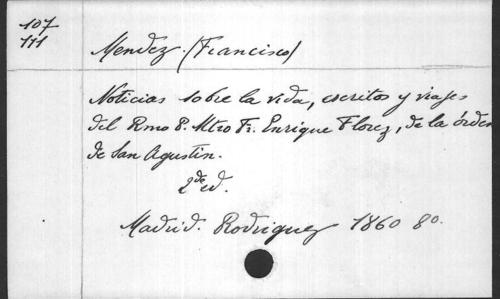 107
111
Mendez (Francisco)
Noticias sobre la vida, escritos y viajes
del Rmo P. Mtro Fr. Enrique Florez, de la órden
de San Agustin.
2de ed.
Madrid. Rodriguez 1860 80.